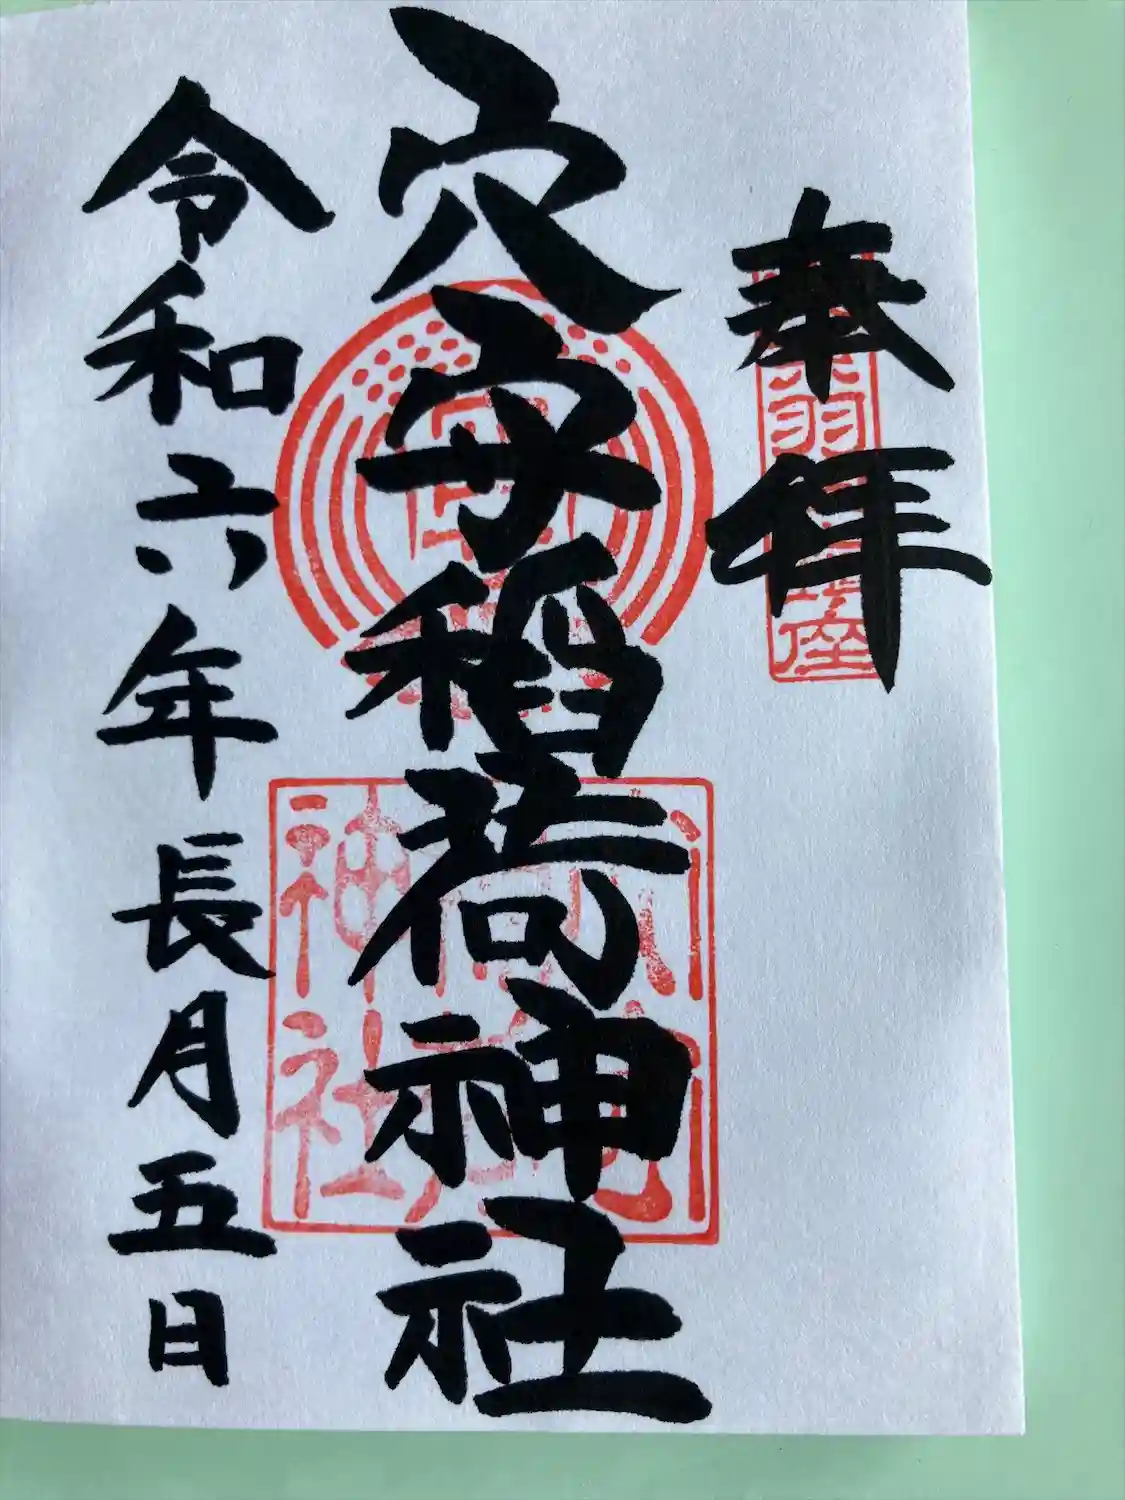 奉拝
羽
座
穴守稲荷神社
神社
令和六年長月五日